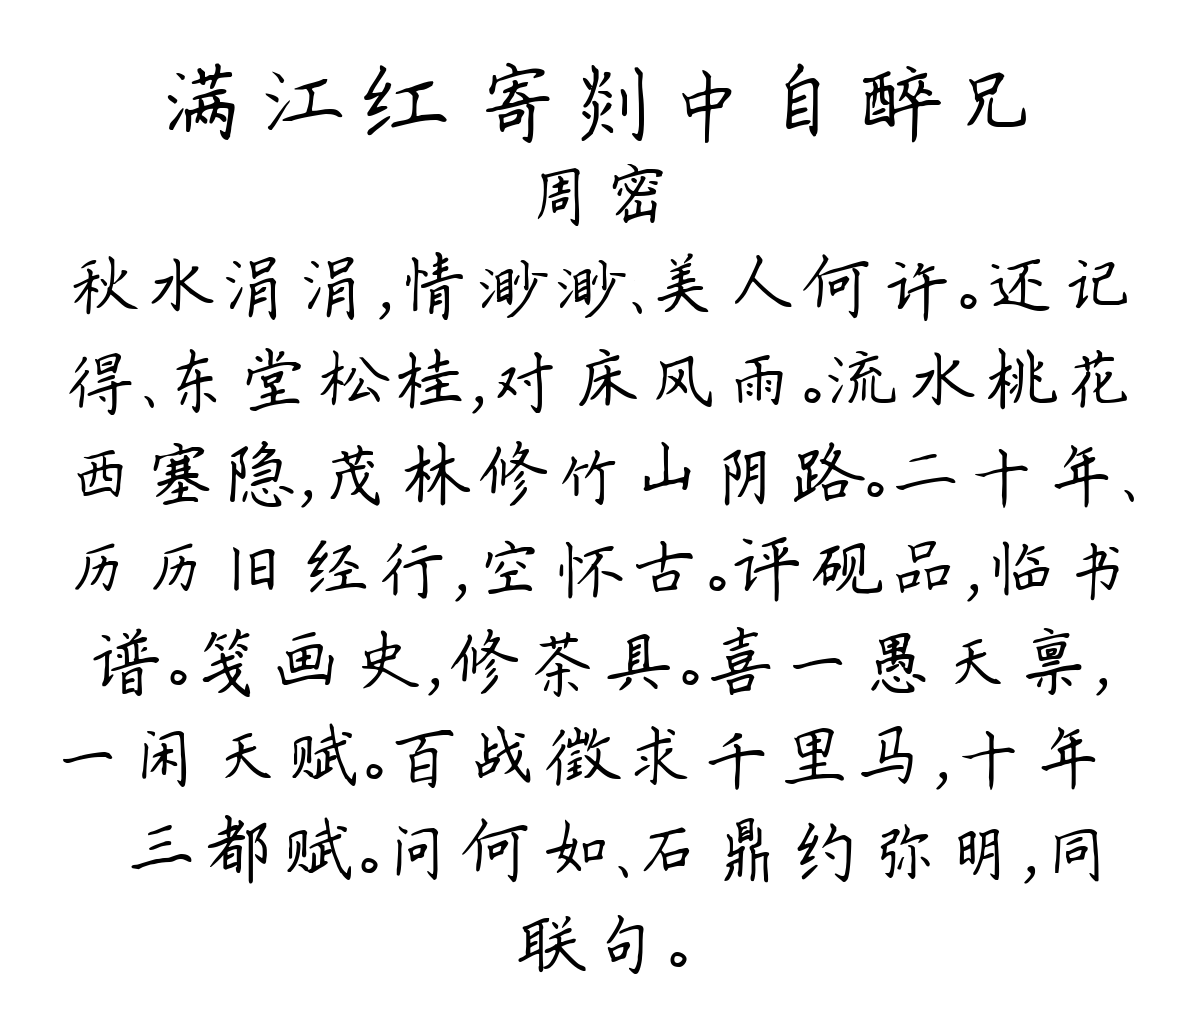 满江红 寄剡中自醉兄
周密
秋水涓涓,情渺渺、美人何许。还记
得、东堂松桂,对床风雨。流水桃花
西塞隐,茂林修竹山阴路。二十年、
历历旧经行,空怀古。评砚品,临书
谱。笺画史,修茶具。喜一愚天禀,
一闲天赋。百战徵求千里马,十年
三都赋。问何如、石鼎约弥明,同
联句。